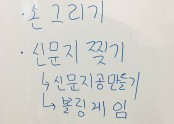 · 손 그리기
· 신문지 찢기
↳ 신문지공만들기
↳ 볼링게임